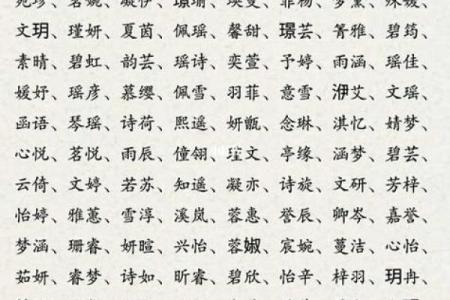 文玥、瑾妍、夏茵、佩瑶、馨甜、璟芸、箐雅、碧筠、
素晴、碧虹、韵芸、瑶诗、奕萱、予婷、雨涵、瑶佳、
媛妤、瑶彦、慕缨、佩雪、羽菲、意雪、洢艾、文瑶、
函语、琴瑶、诗荷、熙遥、妍甄、念琳、淇忆、婧梦、
心悦、茗悦、雨辰、僮翎、瑾文、亭缘、涵梦、碧芸、
云倚、文婷、若苏、知遥、凝亦、诗旋、文研、芳梓、
怡婷、雅蕙、雪淳、溪岚、蓉惠、誉辰、卿岑、嘉誉、
梦涵、珊睿、妍暄、兴怡、蓉婌、宸婉、蔓洁、心怡、
茹妍、睿梦、诗如、昕睿、碧欣、怡辛、梓羽、玥冉、